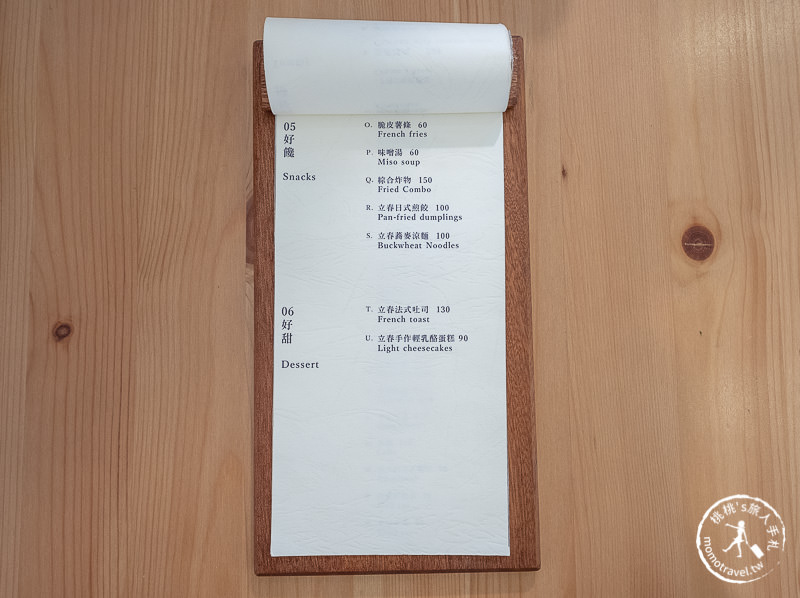 05
好
饞
Snacks
O. 脆皮薯條 60
French fries
P. 味噌湯 60
Miso soup
Q. 綜合炸物 150
Fried Combo
R. 立春日式煎餃 100
Pan-fried dumplings
S. 立春蕎麥涼麵 100
Buckwheat Noodles
06
好
甜
Dessert
T. 立春法式吐司 130
French toast
U. 立春手作輕乳酪蛋糕 90
Light cheesecakes
桃桃's旅人手札
momotravel.tw